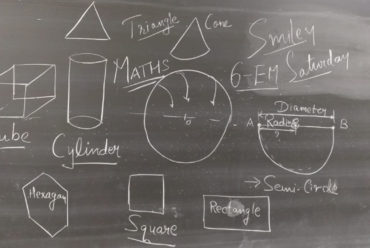 Triangle
Cone
Smiley
MATHS
6-EM Saturday
Diameter
A Radius B
ube
Cylinder
→ Semi-Circle
Hexagan
Square
Rectangle